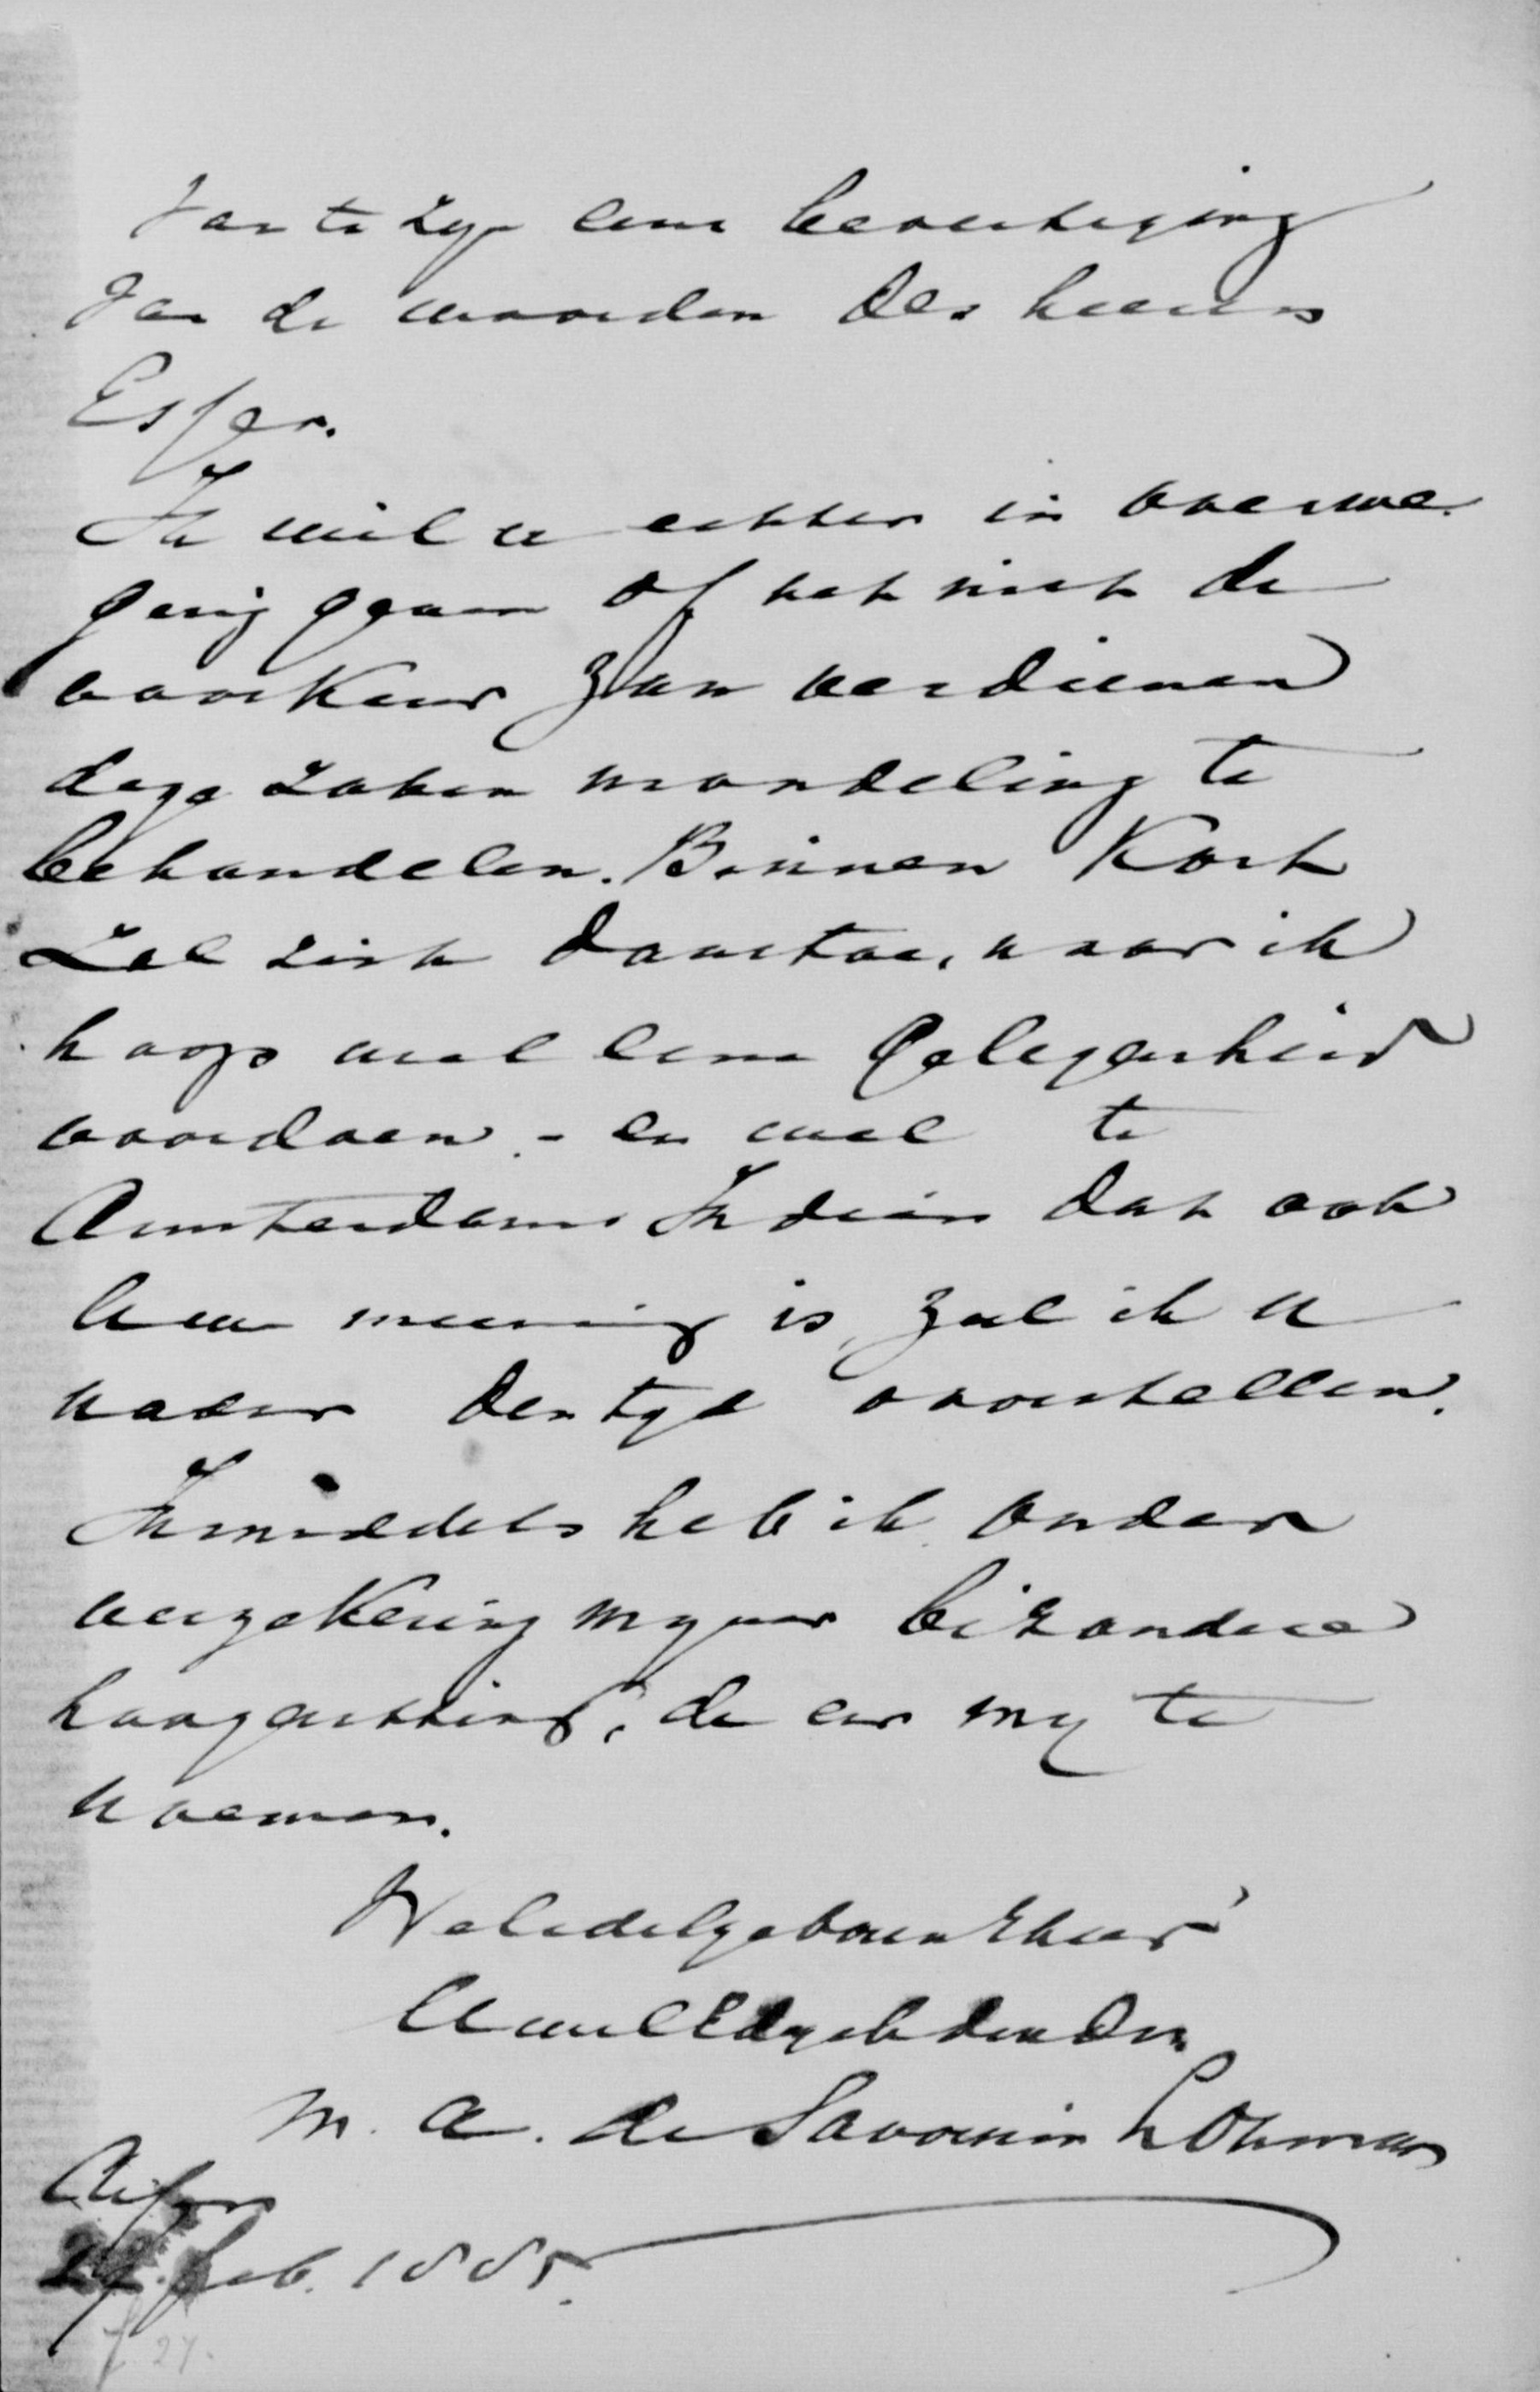 van te zyn eene bevestiging
van de woorden des heeren
Esser.
Ik wil u echter in overwe-
ging geven of het niet de
voorkeur zou verdienen
deze zaken mondeling te
behandelen. Binnen kort
zal zich daartoe, naar ik
hoop wel eene gelegenheid
voordoen - en wel te
Amsterdam. Indien dat ook
Uwe meening is, zal ik u
nader den tyd voorstellen.
Inmiddels heb ik onder
verzekering myner bizondere
hoogachting, de eer my te
noemen.
Weledelgeboren Heer
UwelEdgeb dw Dr.
M. A. de Savornin Lohman
feb. 1885.
27.